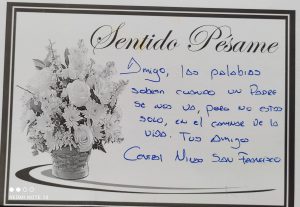 Sentido Pésame
Amigo, las palabras
sobran cuando un Padre
se nos va, pero no estas
solo, en el caminar de la
vida. Tus amigos
San Francisco
REDMI NOTE